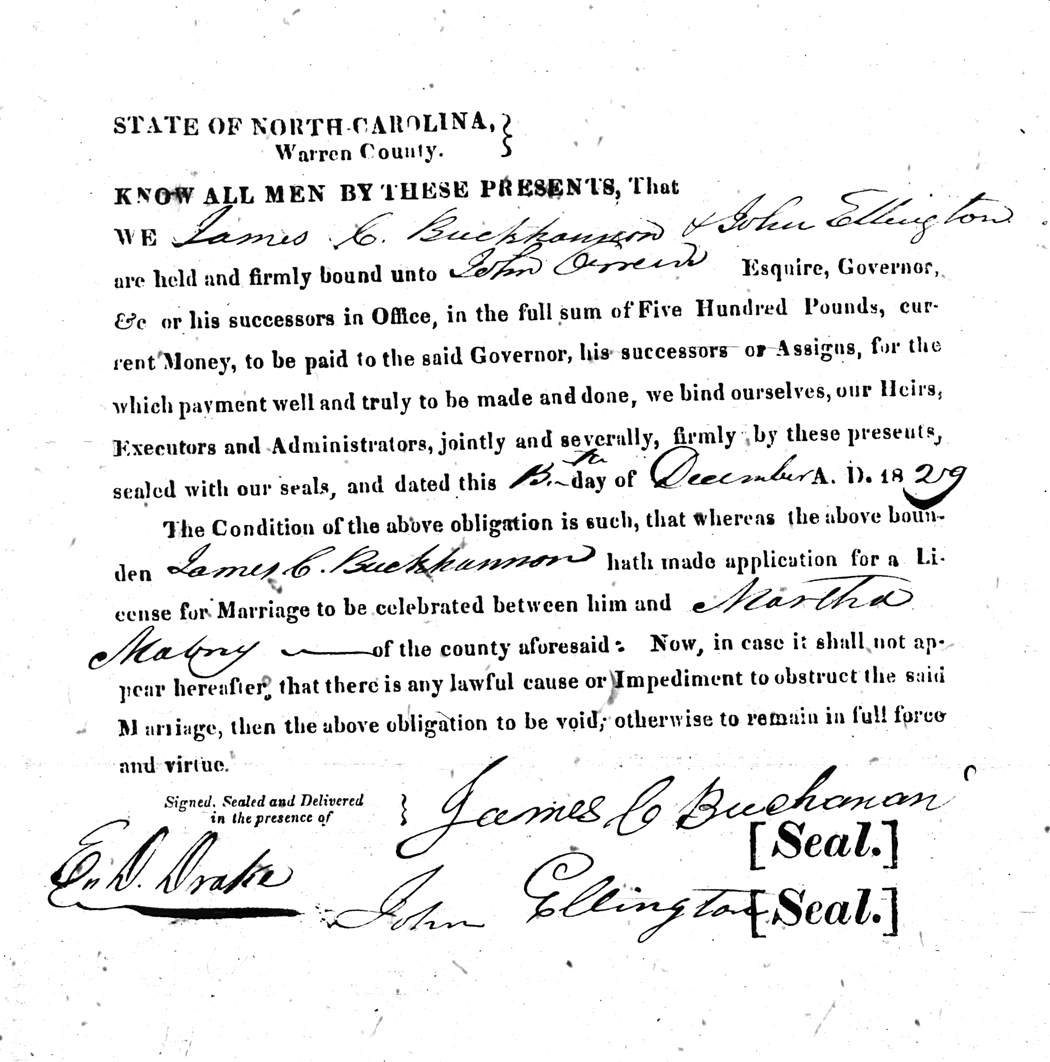 STATE OF NORTH CAROLINA,
Warren County.
KNOW ALL MEN BY THESE PRESENTS, That
WE James C. Buckhannon & John Ellington
are held and firmly bound unto John Esquire, Governor,
&c or his successors in Office, in the full sum of Five Hundred Pounds, cur-
rent Money, to be paid to the said Governor, his successors or Assigns, for the
which payment well and truly to be made and done, we bind ourselves, our Heirs,
Executors and Administrators, jointly and severally, firmly by these presents,
sealed with our seals, and dated this day of December A. D. 1829
The Condition of the above obligation is such, that whereas the above boun-
den James C. Buckhannon hath made application for a Li-
cense for Marriage to be celebrated between him and Martha
of the county aforesaid: Now, in case it shall not ap-
pear hereafter, that there is any lawful cause or Impediment to obstruct the said
Marriage, then the above obligation to be void; otherwise to remain in full force
and virtue.
Signed, Sealed and Delivered
in the presence of
James C Buchanan
[Seal.]
Drake
John Ellington [Seal.]